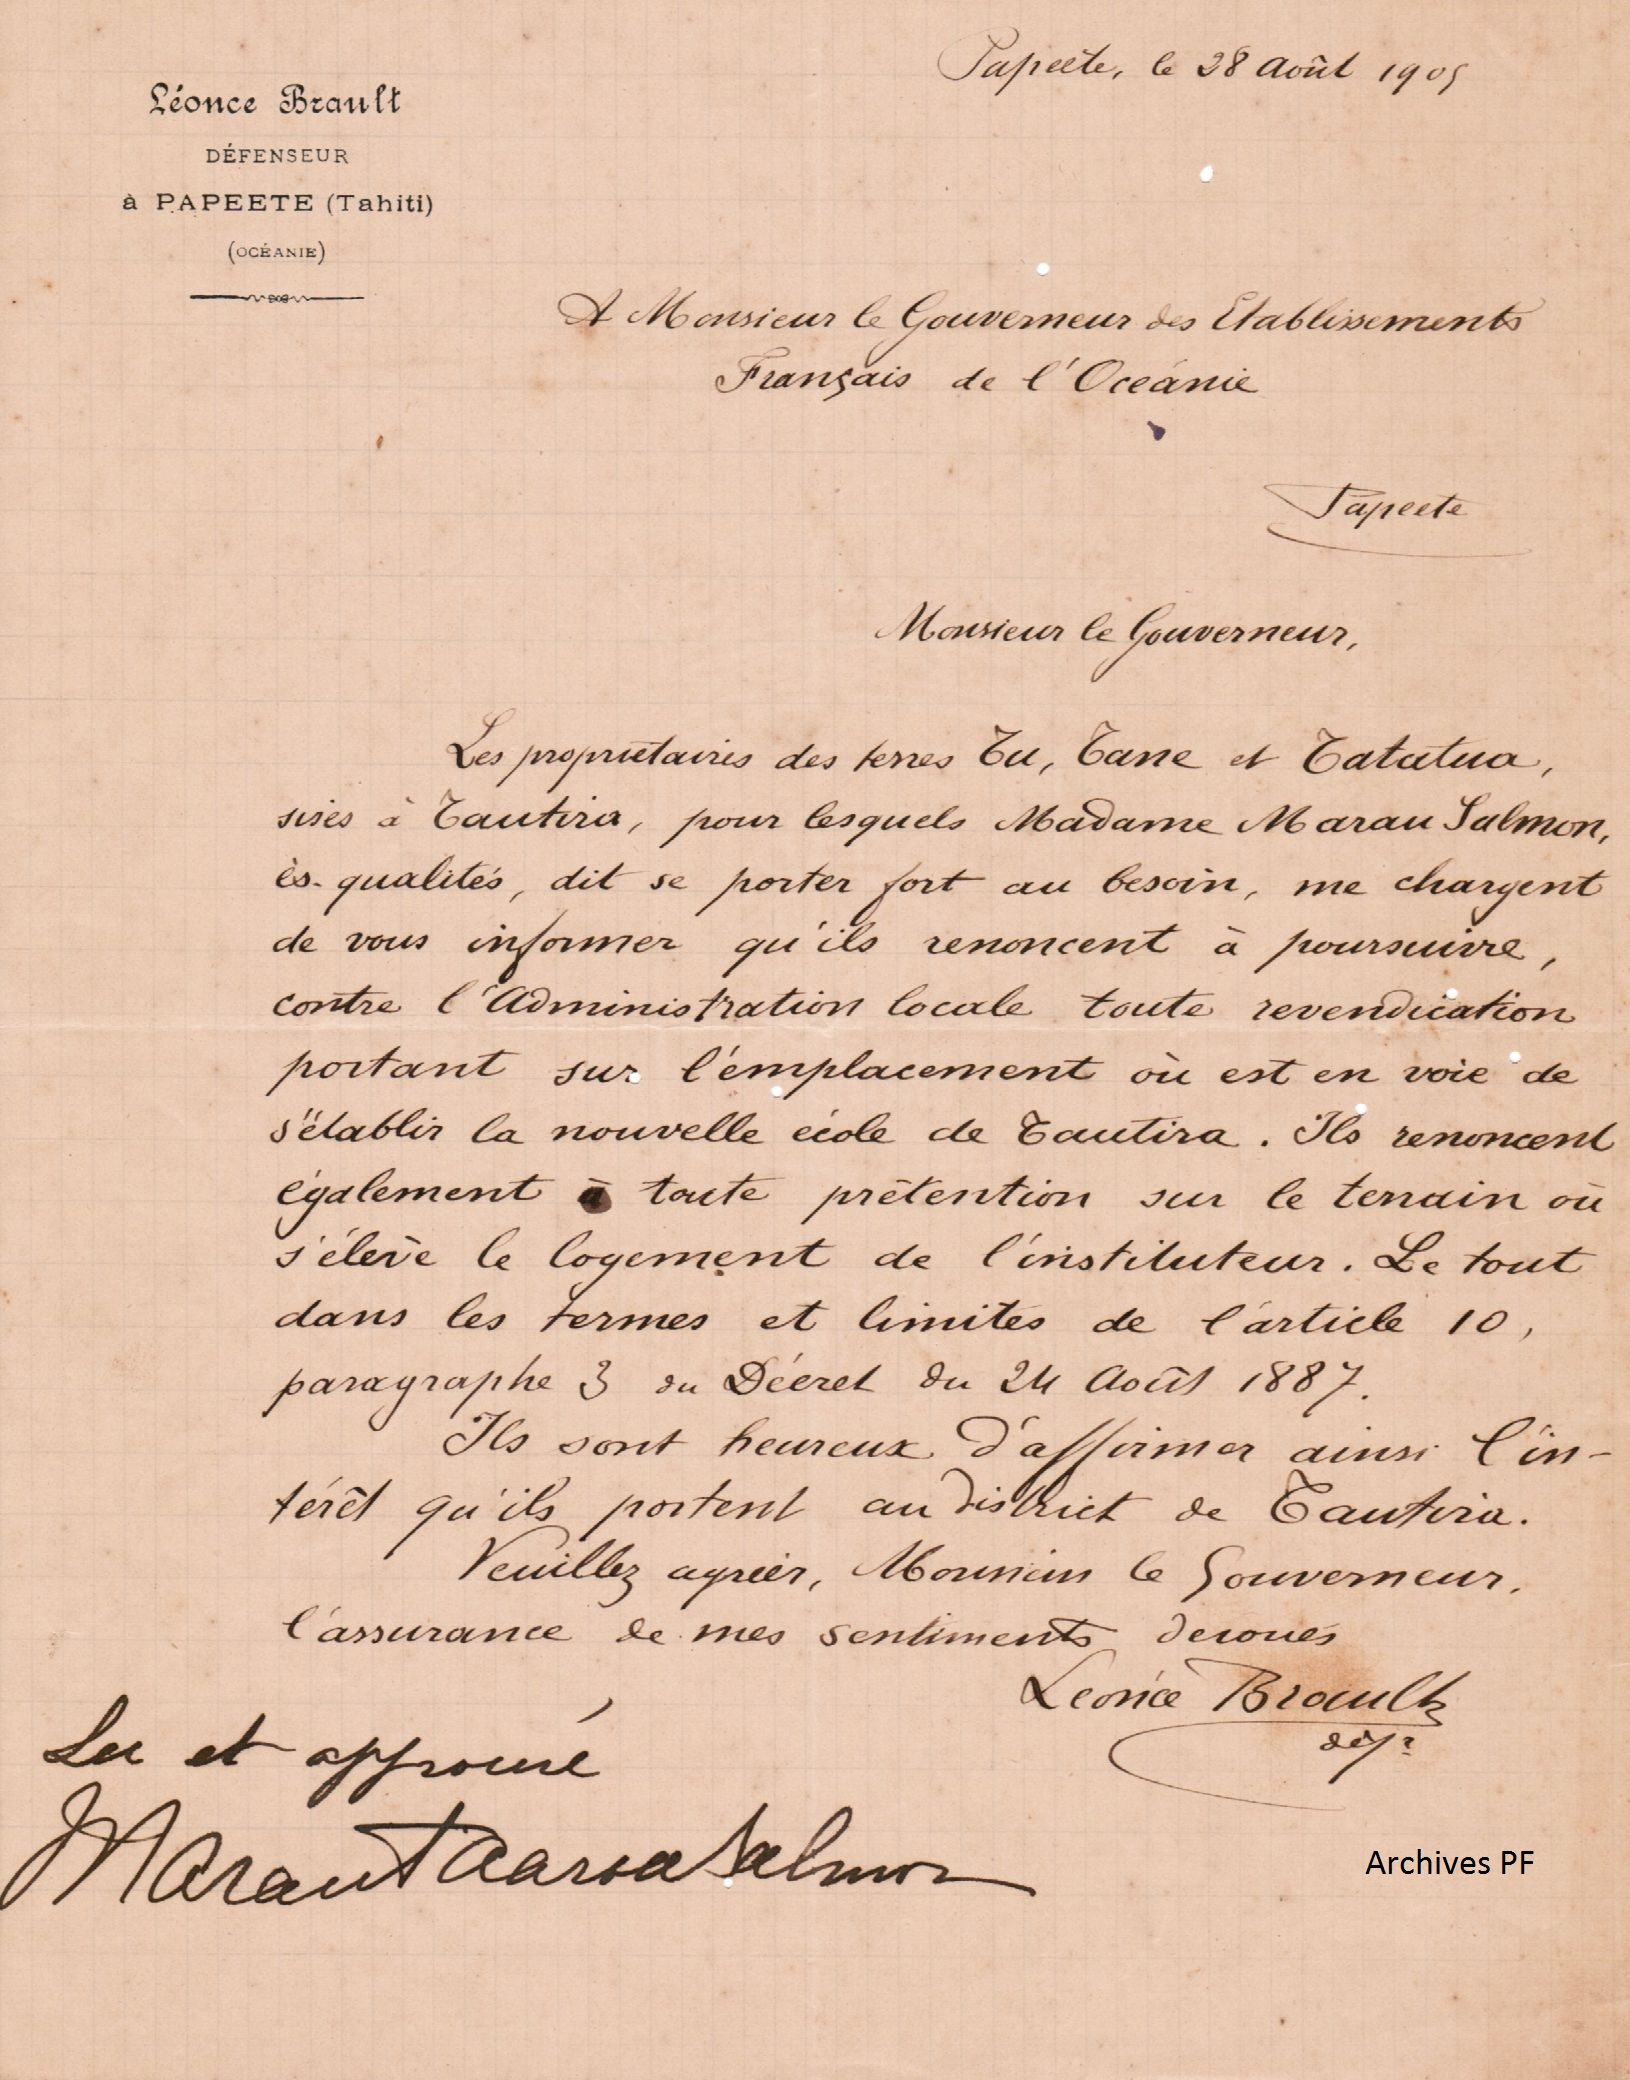 Papeete, le 28 Août 1905
Léonce Brault
DÉFENSEUR
à PAPEETE (Tahiti)
(OCÉANIE)
A Monsieur le Gouverneur des Etablissements
Français de l'Océanie
Papeete
Monsieur le Gouverneur,
Les propriétaires des terres Tu, Tane et Tatatua,
sises à Tautira, pour lesquels Madame Marau Salmon,
ès-qualités, dit se porter fort au besoin, me chargent
de vous informer qu'ils renoncent à poursuivre,
contre l'Administration locale toute revendication
portant sur l'emplacement où est en voie de
s'établir la nouvelle école de Tautira. Ils renoncent
également à toute prétention sur le terrain où
s'élève le logement de l'instituteur. Le tout
dans les termes et limites de l'article 10,
paragraphe 3 du Décret du 24 Août 1887.
Ils sont heureux d'affirmer ainsi l'in-
térêt qu'ils portent au district de Tautira.
Veuillez agréer, Monsieur le Gouverneur,
l'assurance de mes sentiments dévoués
Léonce Brault
défr
Lu et approuvé
Marau Taaroa Salmon
Archives PF